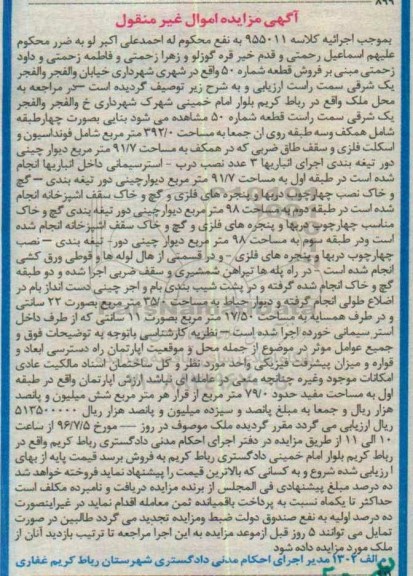 ۸۹۹
آگهی مزایده اموال غیر منقول
بموجب اجرائیه کلاسه ۹۵۵۰۱۱ به نفع محکوم له احمدعلی اکبر لو به ضرر محکوم
علیهم اسماعیل رحمتی و قدم خیر قره گوزلو و زهرا زحمتی و فاطمه زحمتی و داود
زحمتی مبنی بر فروش قطعه شماره ۵۰ واقع در شهری شهرداری خیابان والفجر والفجر
یک شرقی سمت راست ارزیابی و به شرح زیر توصیف گردیده است —در مراجعه به
محل ملک واقع در رباط کریم بلوار امام خمینی شهرک شهرداری خ والفجر والفجر
یک شرقی سمت راست قطعه شماره ۵۰ مشاهده می شود بنایی بصورت چهارطبقه
شامل همکف وسه طبقه روی ان جمعا به مساحت ۳۹۲/۰ متر مربع شامل فونداسیون و
اسکلت فلزی و سقف طاق ضربی که در همکف به مساحت ۹۱/۷ متر مربع دیوار چینی
دور تیغه بندی اجرای انباریها ۳ عدد نصب درب - استرسیمانی داخل انباریها انجام
شده است در طبقه اول به مساحت ۹۱/۷ متر مربع دیوارچینی دور تیغه بندی – گچ
و خاک نصب چهارچوب دربها و پنجره های فلزی و گچ و خاک سقف اشپزخانه انجام
شده است در طبقه دوم به مساحت ۹۸ متر مربع دیوارچینی دور تیغه بندی گچ و خاک
مناسب چهارچوب دربها و پنجره های فلزی و گچ و خاک سقف اشپزخانه انجام شده
است ودر طبقه سوم به مساحت ۹۸ متر مربع دیوار چینی دور - تیغه بندی – نصب
چهارچوب دربها و پنجره های فلزی – و در قسمتی از هال لوله ها و قوطی ورق کشی
انجام شده است – در راه پله ها تیراهن شمشیری و سقف ضربی اجرا شده و دو طبقه
گچ و خاک انجام شده گرفته و در پشت شیب بندی بام و اجر چینی دست انداز بام در
اضلاع طولی انجام گرفته و دیوار حیاط به مساحت ۳۵/۰ متر مربع بصورت ۲۲ سانتی
و در طرف همسایه به مساحت ۱۷/۵۰ متر مربع بصورت سانتی که از طرف داخل
استر سیمانی خورده اجرا شده است – نظریه کارشناسی باتوجه به توضیحات فوق و
جمیع عوامل موثر در موضوع از جمله محل و موقعیت اپارتمان راه دسترسی ابعاد و
قواره و میزان پیشرفت فیزیکی واحد مورد نظر و کل ساختمان اسناد مالکیت عادی
امکانات موجود وغیره چنانچه منعی در معامله ای نباشد ارزش اپارتمان واقع در طبقه
اول به مساحت مفید حدود ۷۹/۰ متر مربع از قرار هر متر مربع شش میلیون و پانصد
هزار ریال و جمعا به مبلغ پانصد و سیزده میلیون و پانصد هزار ریال ۵۱۳۵۰۰۰۰۰
ریال ارزیابی می گردد مقرر گردیده ملک موصوف در روز — مورخ ۹۶/۷/۵ از ساعت
۱۰ الی ۱۱ از طریق مزایده در دفتر اجرای احکام مدنی دادگستری رباط کریم واقع در
رباط کریم بلوار امام خمینی دادگستری رباط کریم به فروش برسد قیمت پایه از بهای
ارزیابی شده شروع و به کسانی که بالاترین قیمت را پیشنهاد نماید فروخته خواهد شد
ده درصد مبلغ پیشنهادی فی المجلس از برنده مزایده دریافت و نامبرده مکلف است
حداکثر تا یکماه نسبت به پرداخت باقیمانده ثمن معامله اقدام نماید در غیراینصورت
ده درصد اولیه به نفع صندوق دولت ضبط ومزایده تجدید می گردد طالبین در صورت
تمایل می توانند ۵ روز قبل ازموعد مزایده به این اجرا مراجعه تا ترتیب بازدید آنان از
ملک مورد مزایده داده شود
الف ۱۳۰۲ مدیر اجرای احکام مدنی دادگستری شهرستان رباط کریم غفاری